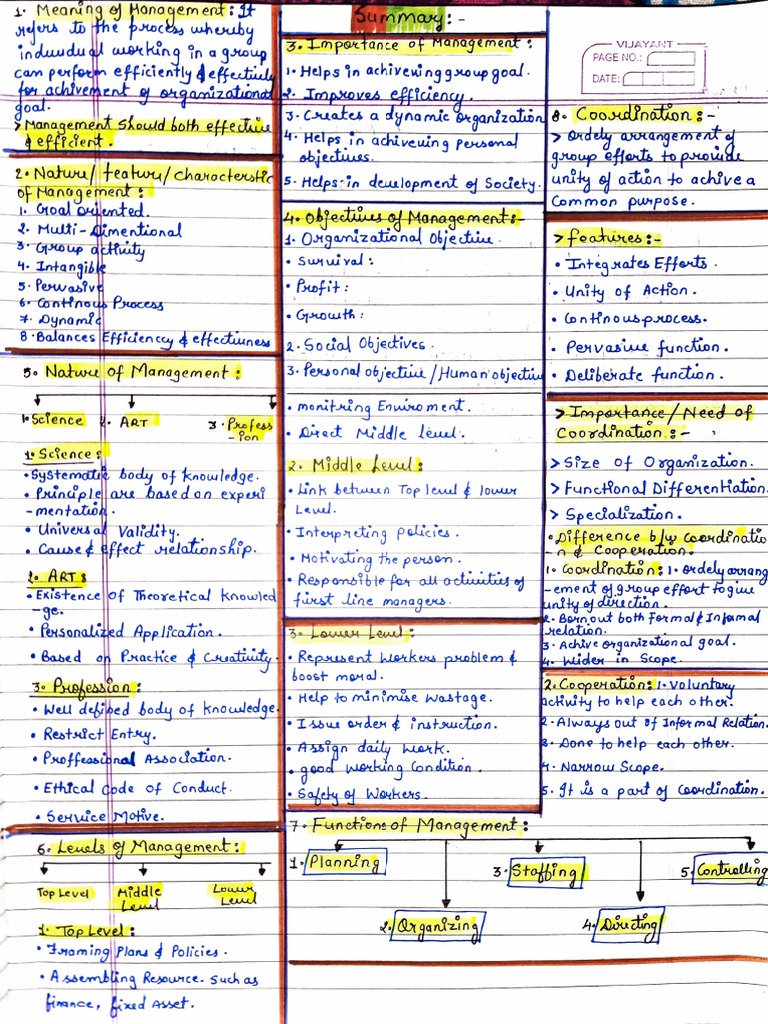 Summary:-
1. Meaning of Management: It
refers to the process whereby
induvidual working in a group
can perform efficiently & effectively
for achivement of organizational
goal.
> Management Should both effective
& efficient.
2. Nature/feature/characterstic
of Management:
1. Goal oriented.
2. Multi-Dimentional
3. Group activity
4. Intangible
5. Pervasive
6. Continous Process
7. Dynamic
8. Balances Efficiency & effectivness
5. Nature of Management:
1. Science
2. ART
3. Profess
-ion
1. Science:
• Systematic body of knowledge.
• Principle are based on experi
-mentation.
• Universal Validity.
• Cause & effect relationship.
2. ART:
• Existence of Theoretical knowled
-ge.
• Personalized Application.
• Based on Practice & Creativity.
3. Profession:
• Well defined body of knowledge.
• Restrict Entry.
• Proffessional Association.
• Ethical code of Conduct.
• Service Motive.
6. Levels of Management:
Top Level
Middle
Level
Lower
Level
1. Top Level:
• Framing Plans & Policies.
• Assembling Resource. Such as
finance, fixed Asset.
3. Importance of Management:
1. Helps in achivening group goal.
2. Improves efficiency.
3. Creates a dynamic organization
4. Helps in achivening personal
objectives.
5. Helps in development of Society.
4. Objectives of Management:-
1. Organizational Objective.
• Survival:
• Profit:
• Growth:
2. Social Objectives.
3. Personal objective/Human objective
• monitring Enviroment.
• Direct Middle Level.
2. Middle Level:
• Link between Top level & lower
Level.
• Interpreting policies.
• Motivating the person.
• Responsible for all activities of
first line managers.
3. Lower Level:
• Represent Workers problem &
boost moral.
• Help to minimise wastage.
• Issue order & instruction.
• Assign daily work.
• good Working Condition.
• Safety of Workers.
7. Functions of Management:
1. Planning
2. Organizing
3. Staffing
4. Directing
5. Controlling
VIJAYANT
PAGE NO.:
DATE:
8. Coordination:-
> Ordely arrangement of
group efforts to provide
unity of action to achive a
Common purpose.
> features:-
• Integrates Efforts.
• Unity of Action.
• Continous process.
• Pervasive function.
• Deliberate function.
> Importance/Need of
Coordination:-
> Size of Organization.
> Functional Differentiation.
> Specialization.
• Difference b/w Coordinatio
-n & Cooperation.
1. Coordination: 1. Ordely arrang
-ement of group effort to give
unity of direction.
2. Born out both Formal & Informal
relation.
3. Achive organizational goal.
4. Wider in Scope.
2. Cooperation: 1. Voluntary
activity to help each other.
2. Always out of Informal Relation.
3. Done to help each other.
4. Narrow Scope.
5. It is a part of Coordination.